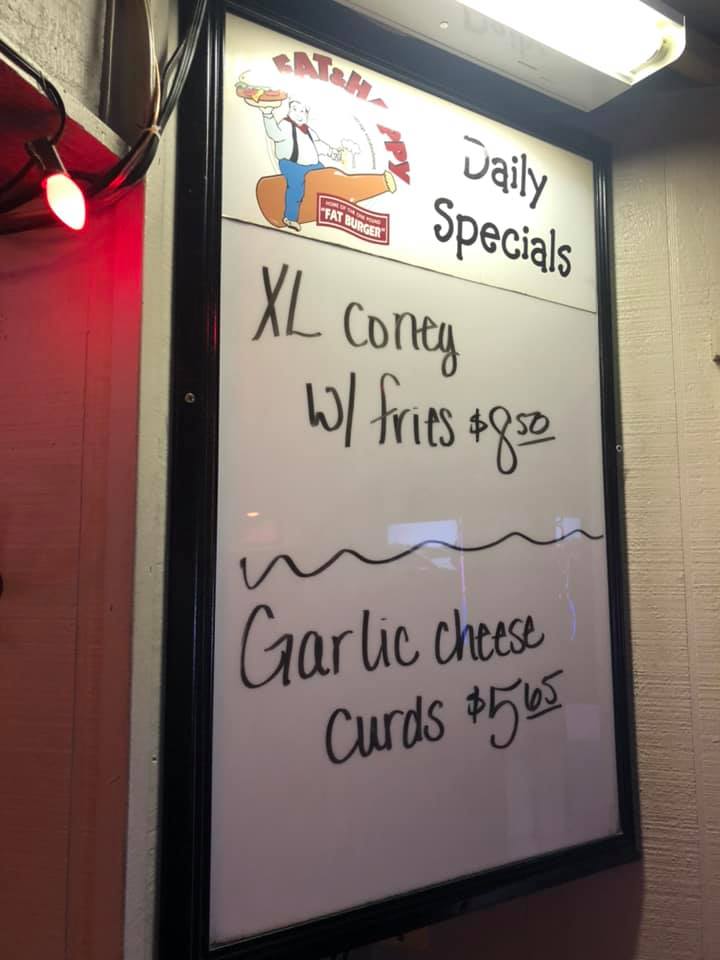 FAT & HAPPY
HOME OF THE ONE POUND
"FAT BURGER"
Daily
Specials
XL Coney
w/ fries $8.50
Garlic cheese
Curds $5.65